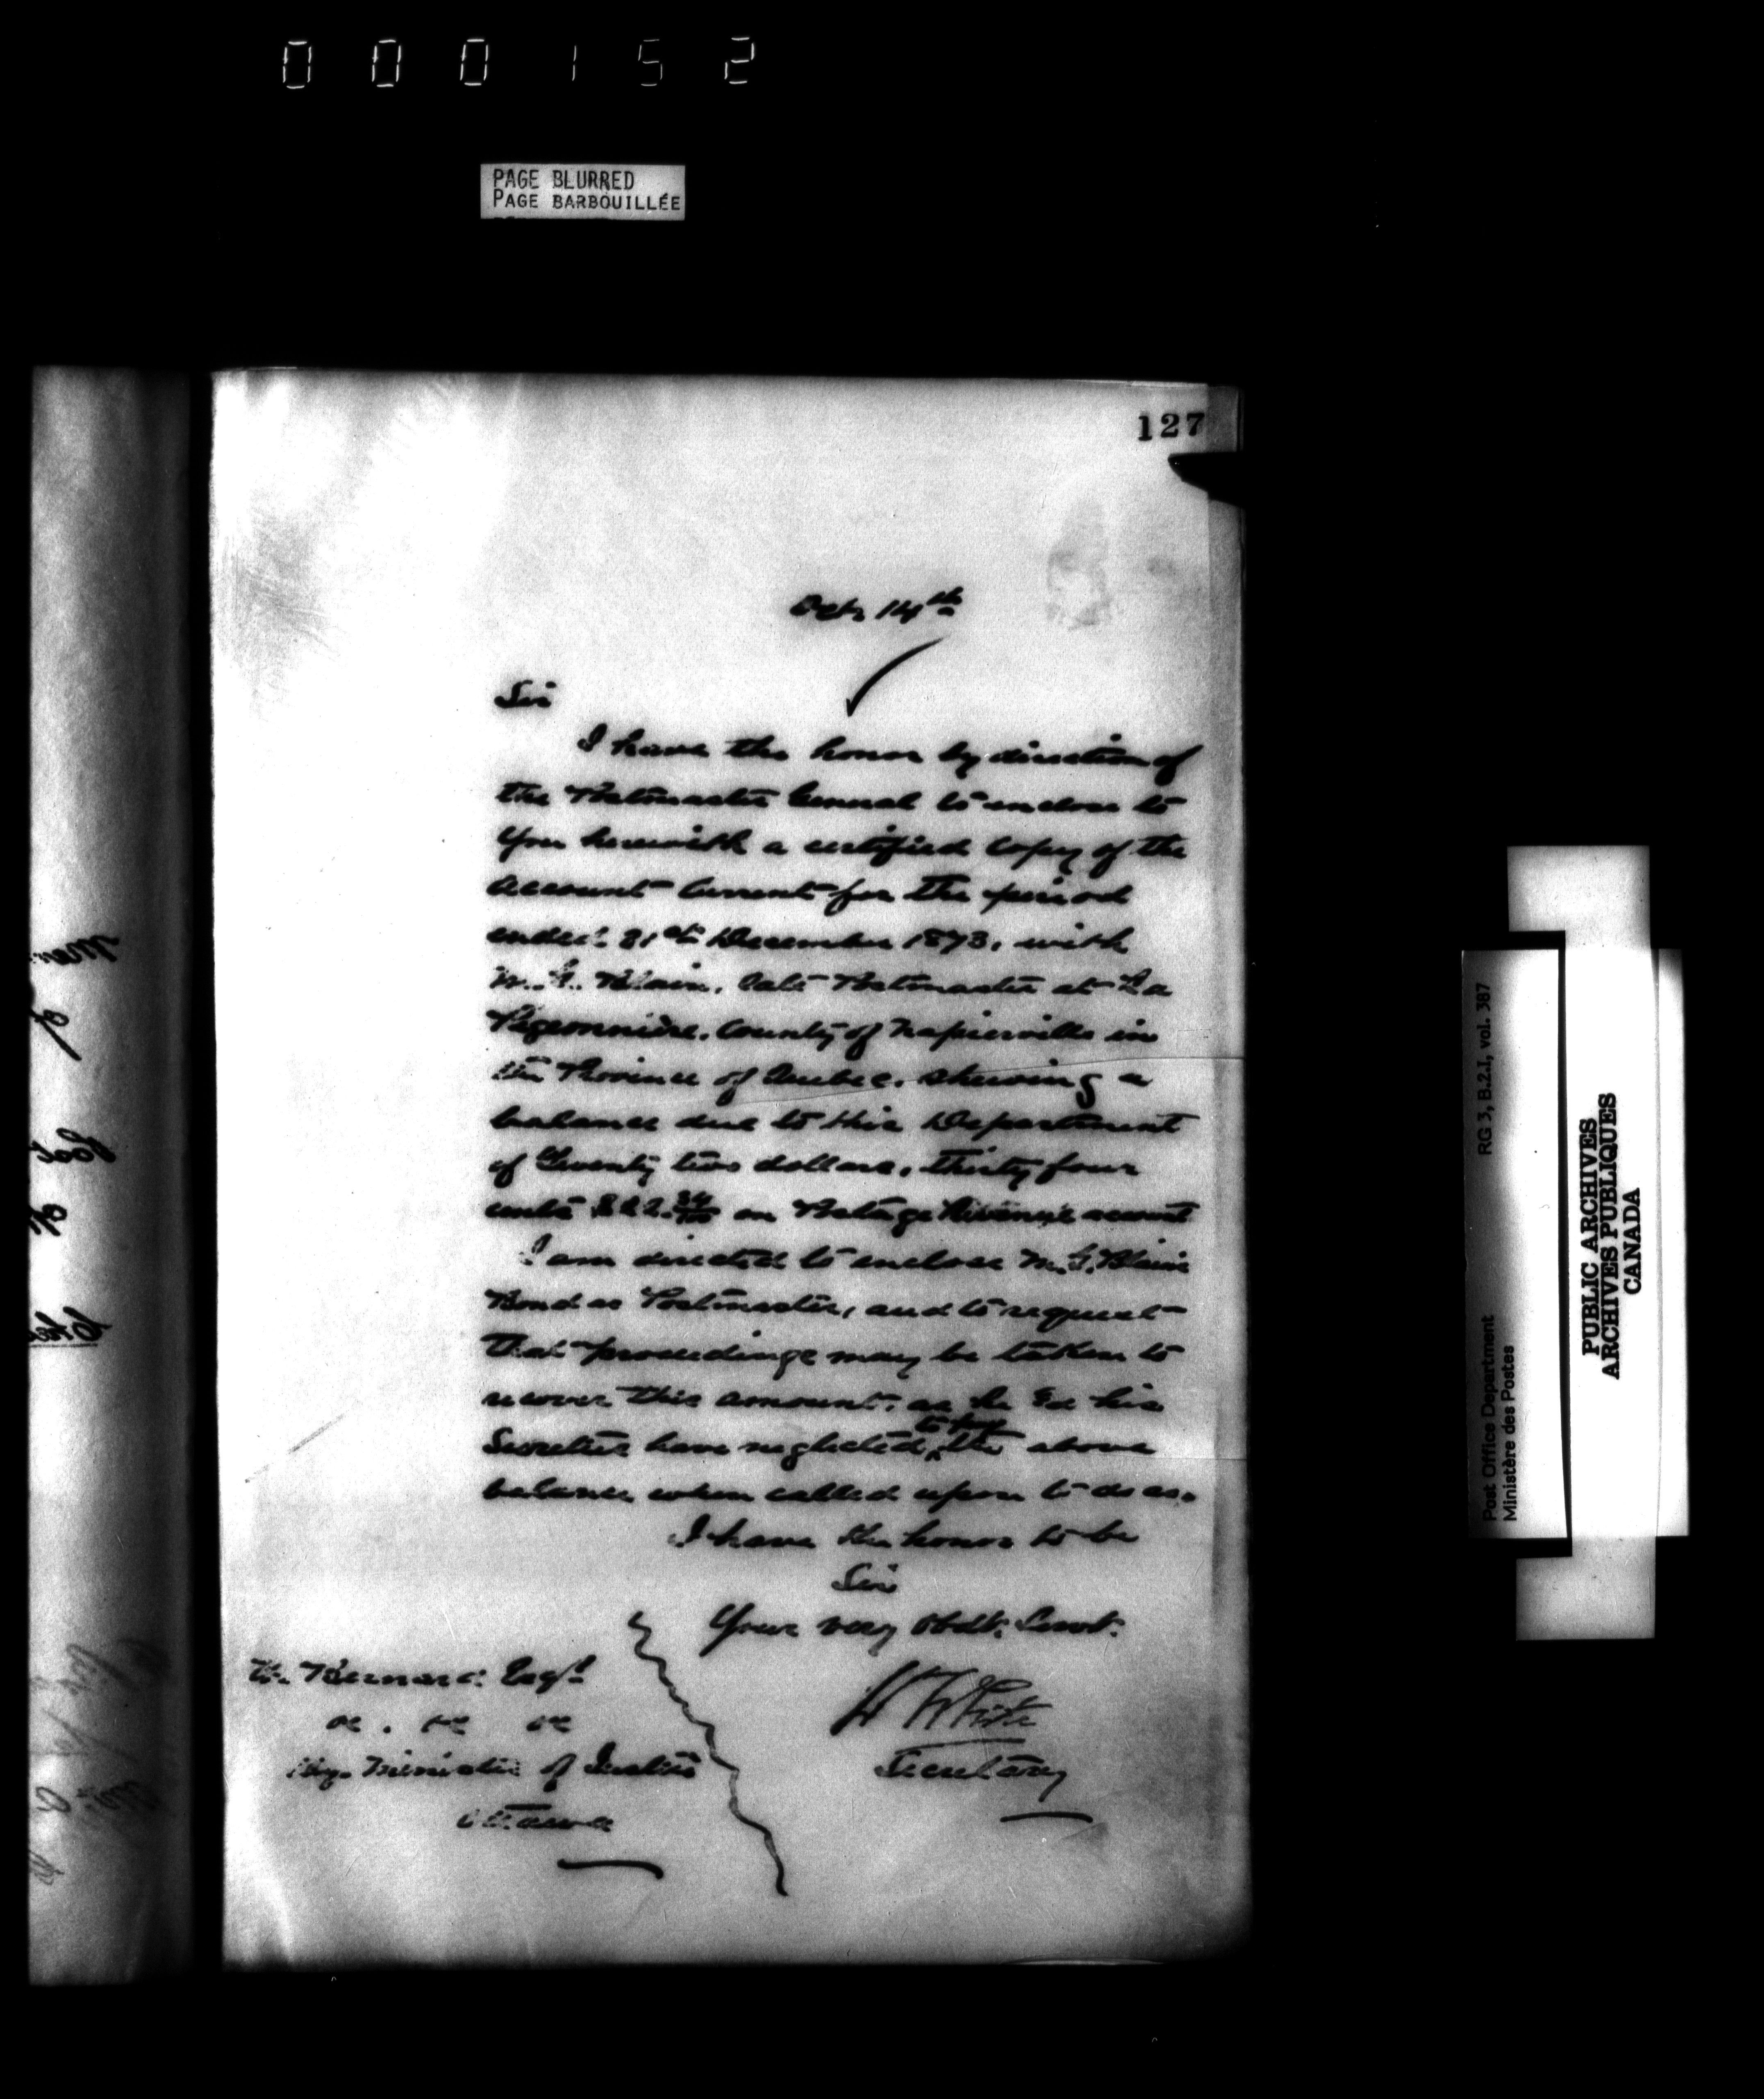 000152
PAGE BLURRED
PAGE BARBOUILLÉE
127
Oct 14th
Sir
I have the honor by direction of
the Postmaster General to enclose to
you herewith a certified copy of the
account current for the period
ended 31st December 1873, with
Blain, late Postmaster at La
Pigeonnière, County of Napierville in
the Province of Quebec, shewing a
balance due to this Department
of Twenty two dollars, thirty four
cents $22.34/100 on Postage Revenue account
I am directed to enclose Blain
Bond as Postmaster, and to request
that proceedings may be taken to
recover this amount, as he & his
Sureties have neglected to pay the above
balance when called upon to do so.
I have the honor to be
Sir
Your very Obdt. Servt.
W White
Secretary
Bernard Esqr
&c. &c &c
Minister of Justice
Ottawa
Post Office Department
Ministère des Postes
RG 3, B.2.I, vol. 387
PUBLIC ARCHIVES
ARCHIVES PUBLIQUES
CANADA